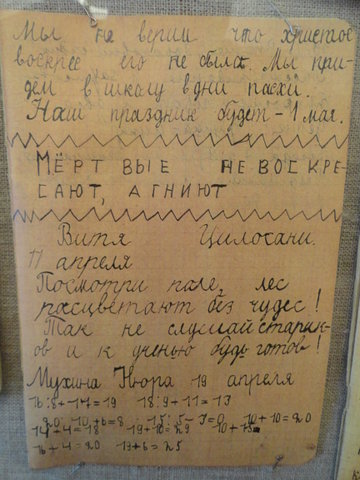 Мы не верим что христос
воскрес его не было. Мы при-
дём в школу в дни пасхи.
Наш праздник будет - 1 мая.
МЁРТВЫЕ НЕ ВОСКРЕ-
САЮТ, А ГНИЮТ
Витя Цилосани.
17 апреля
Посмотри поле, лес
расцветают без чудес!
Так не слушай старик-
ов и к ученью будь готов!
Мухина Нюра 19 апреля
16:8+17=19 18:9+11=13
20 10+6=8 15:5-3=0 10+10=20
14+4=18 19+10=29 10+
16+4=20 19+6=25